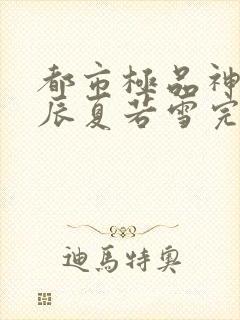 都市極品神
辰夏若雪完
迪馬特奧